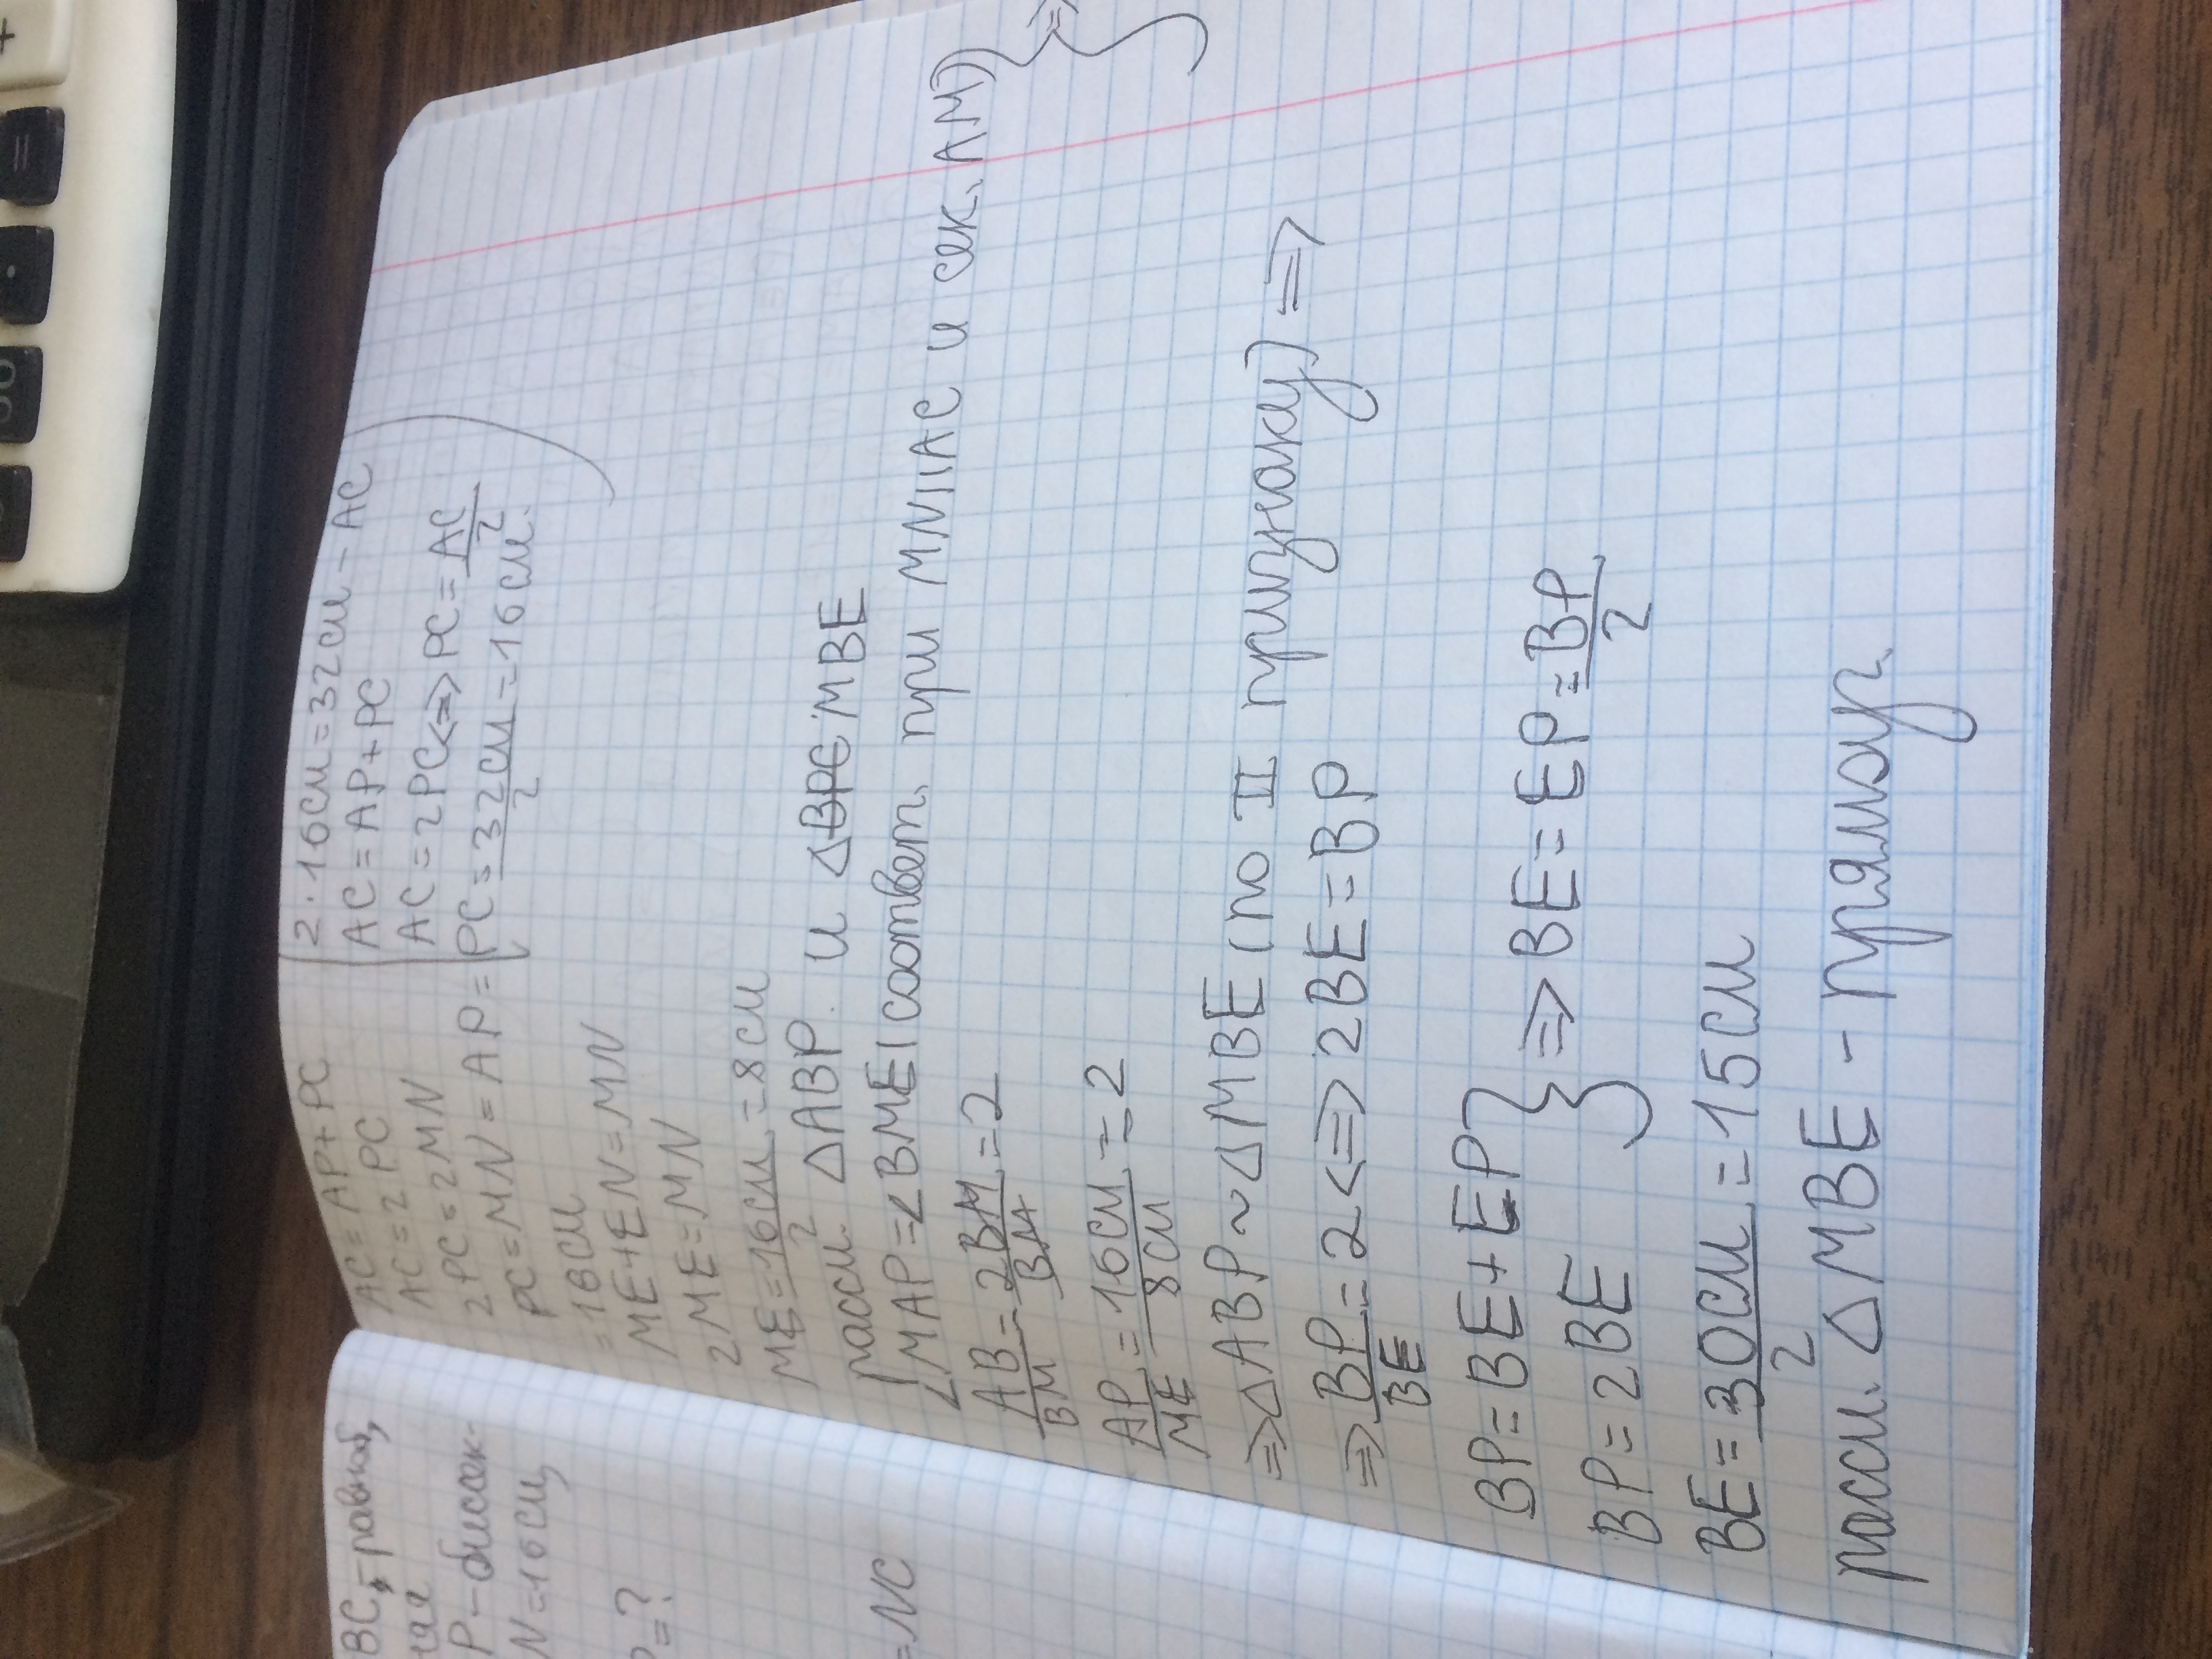 ВС,-равноб,
ние
Р-биссек-
N=16см,
Р=?
=NC
AC=AP+PC
AC=2PC
2PC=2MN
PC=MN=AP=
=16см
ME+EN=MN
2ME=MN
ME=16см/2=8см
2·16см=32см-AC
AC=AP+PC
AC=2PC<=>PC=AC/2
PC=32см/2=16см.
рассм. △ABP. и △BPC MBE
∠MAP=∠BME(соответ. при MN||AC и сек. AM)
AB/BM=2BM/BM=2
AP/ME=16см/8см=2
=>
=>△ABP~△MBE(по II признаку)=>
=>BP/BE=2<=>2BE=BP
BP=BE+EP
BP=2BE
=>BE=EP=BP/2
BE=30см/2=15см
рассм. △MBE-прямоуг.